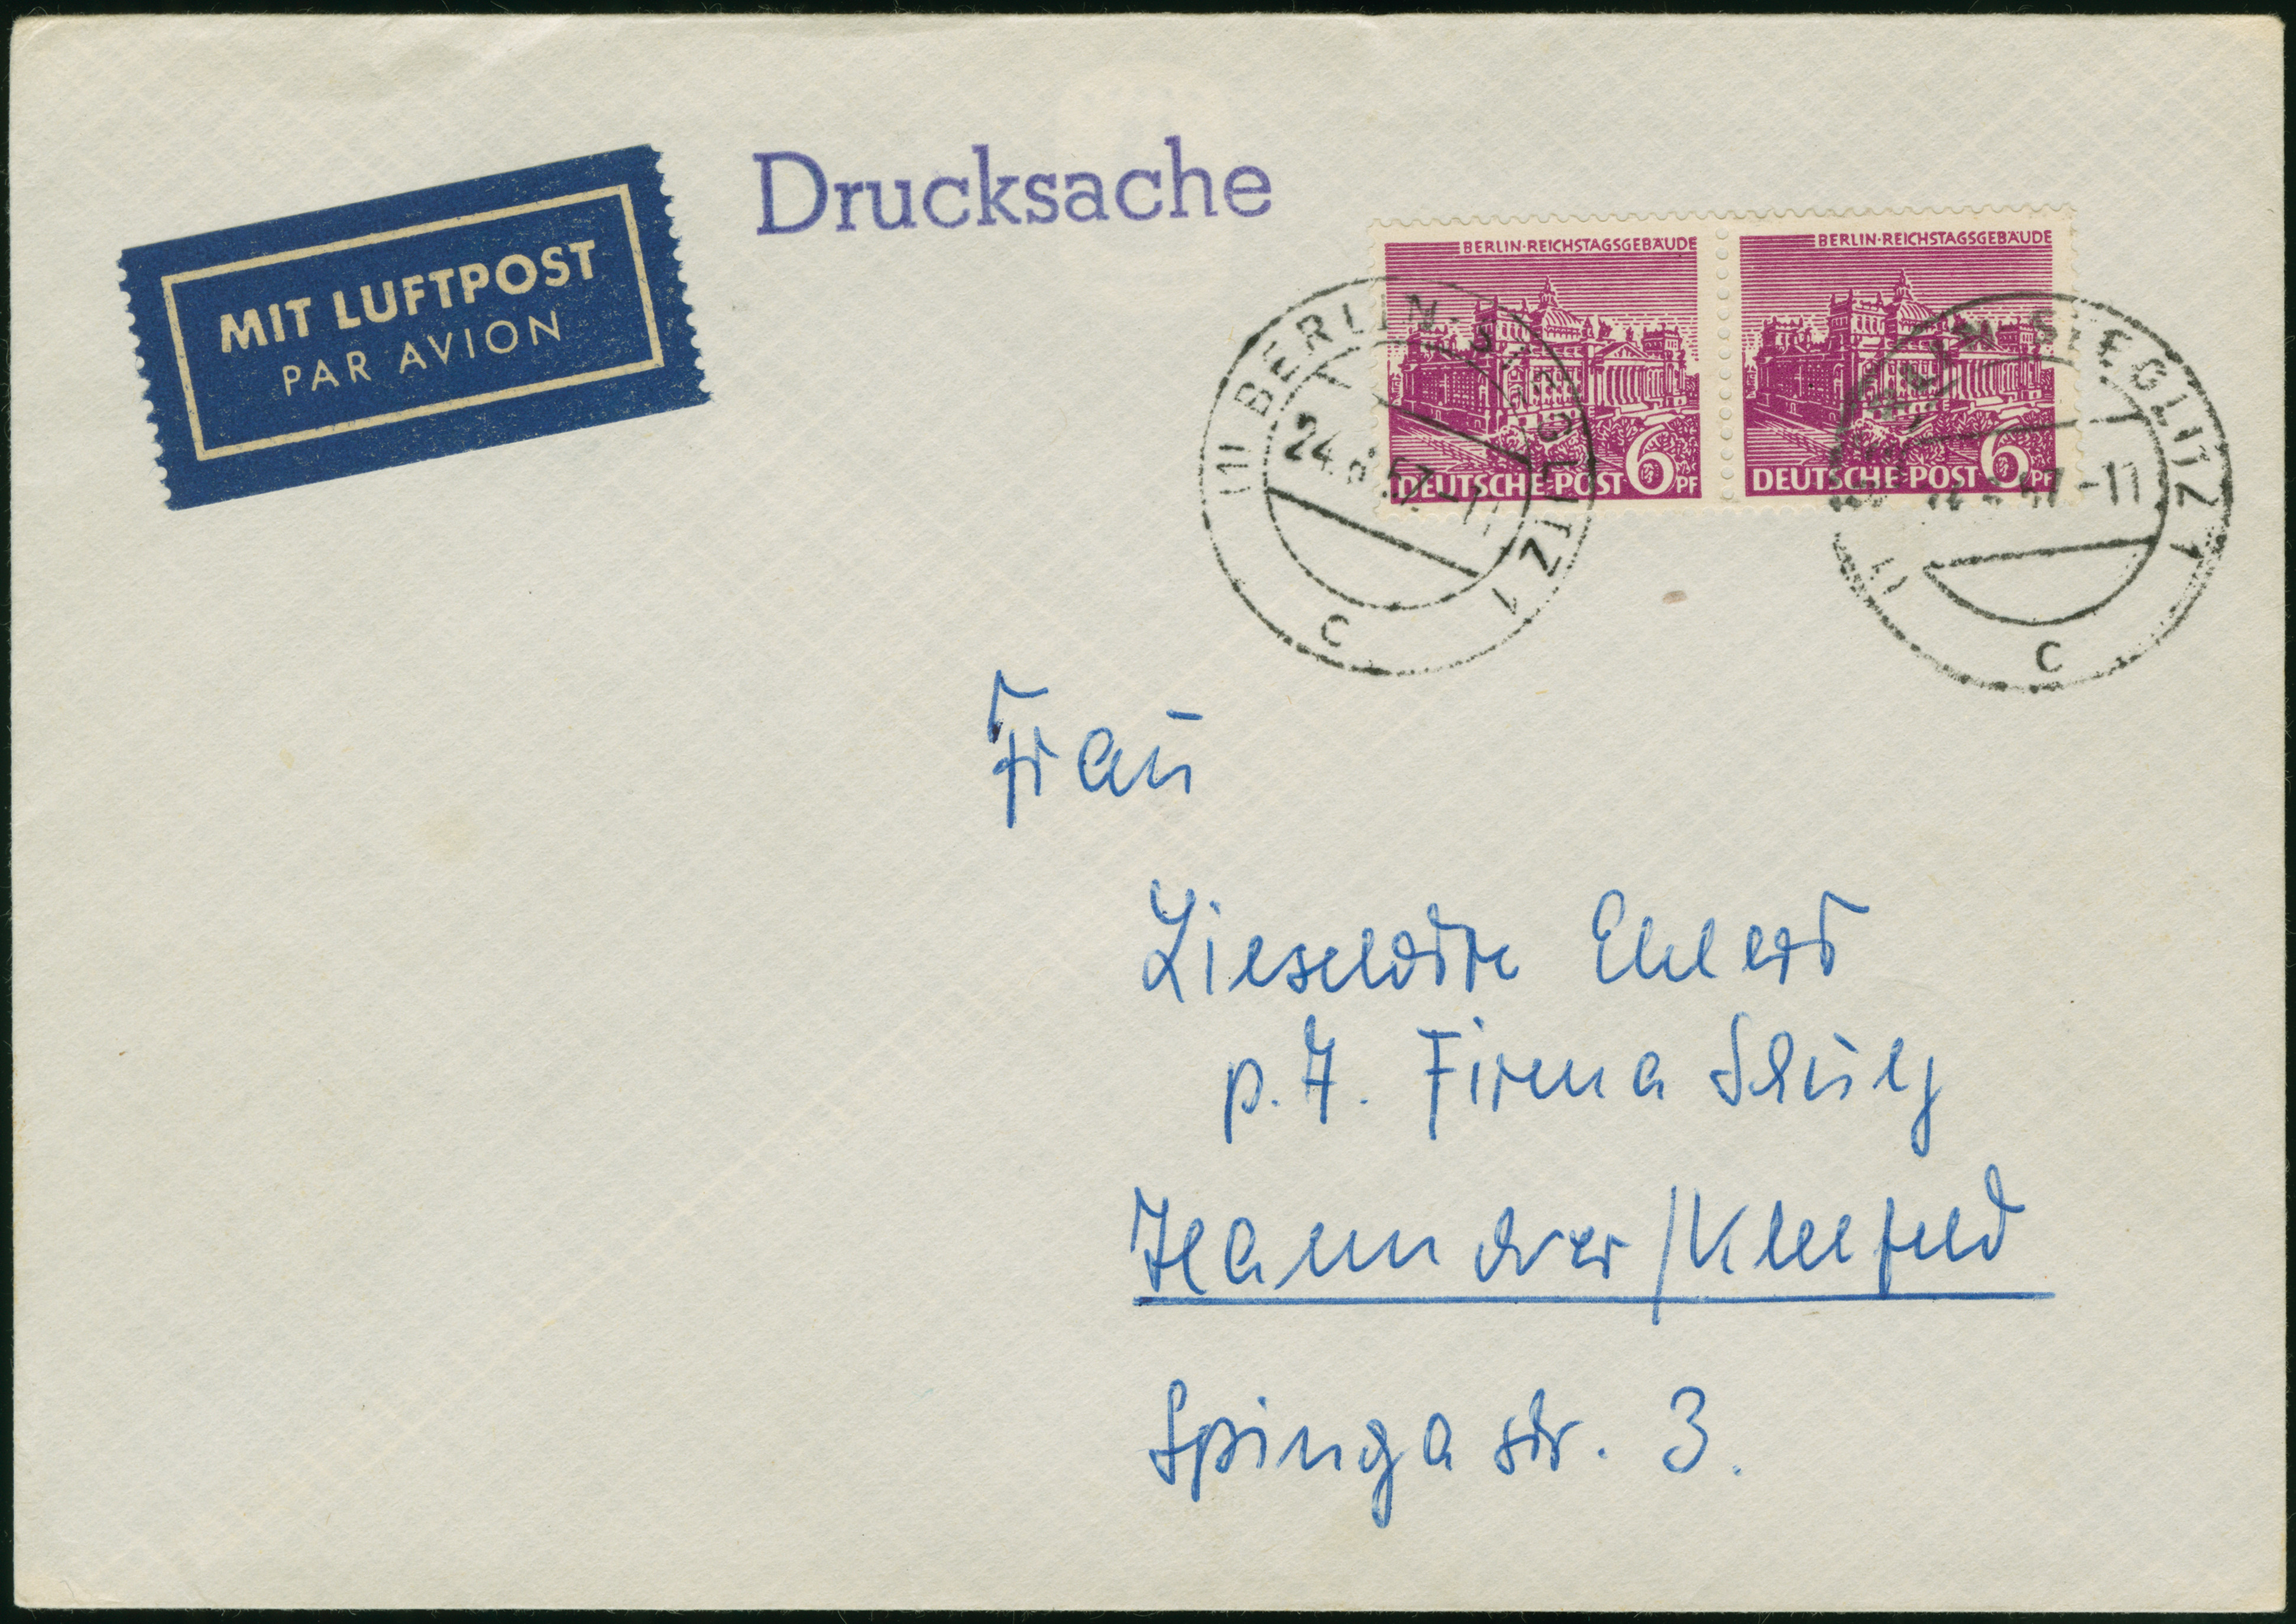 MIT LUFTPOST
PAR AVION
Drucksache
BERLIN-REICHSTAGSGEBÄUDE
DEUTSCHE POST 6 PF
BERLIN-REICHSTAGSGEBÄUDE
DEUTSCHE POST 6 PF
BERLIN-STEGLITZ 1
24.8.57.-11
c
BERLIN-STEGLITZ 1
24.8.57-11
c
Frau
Lieselotte Ehlers
p. A. Firma Schulz
Hannover/Kleefeld
Spingastr. 3.